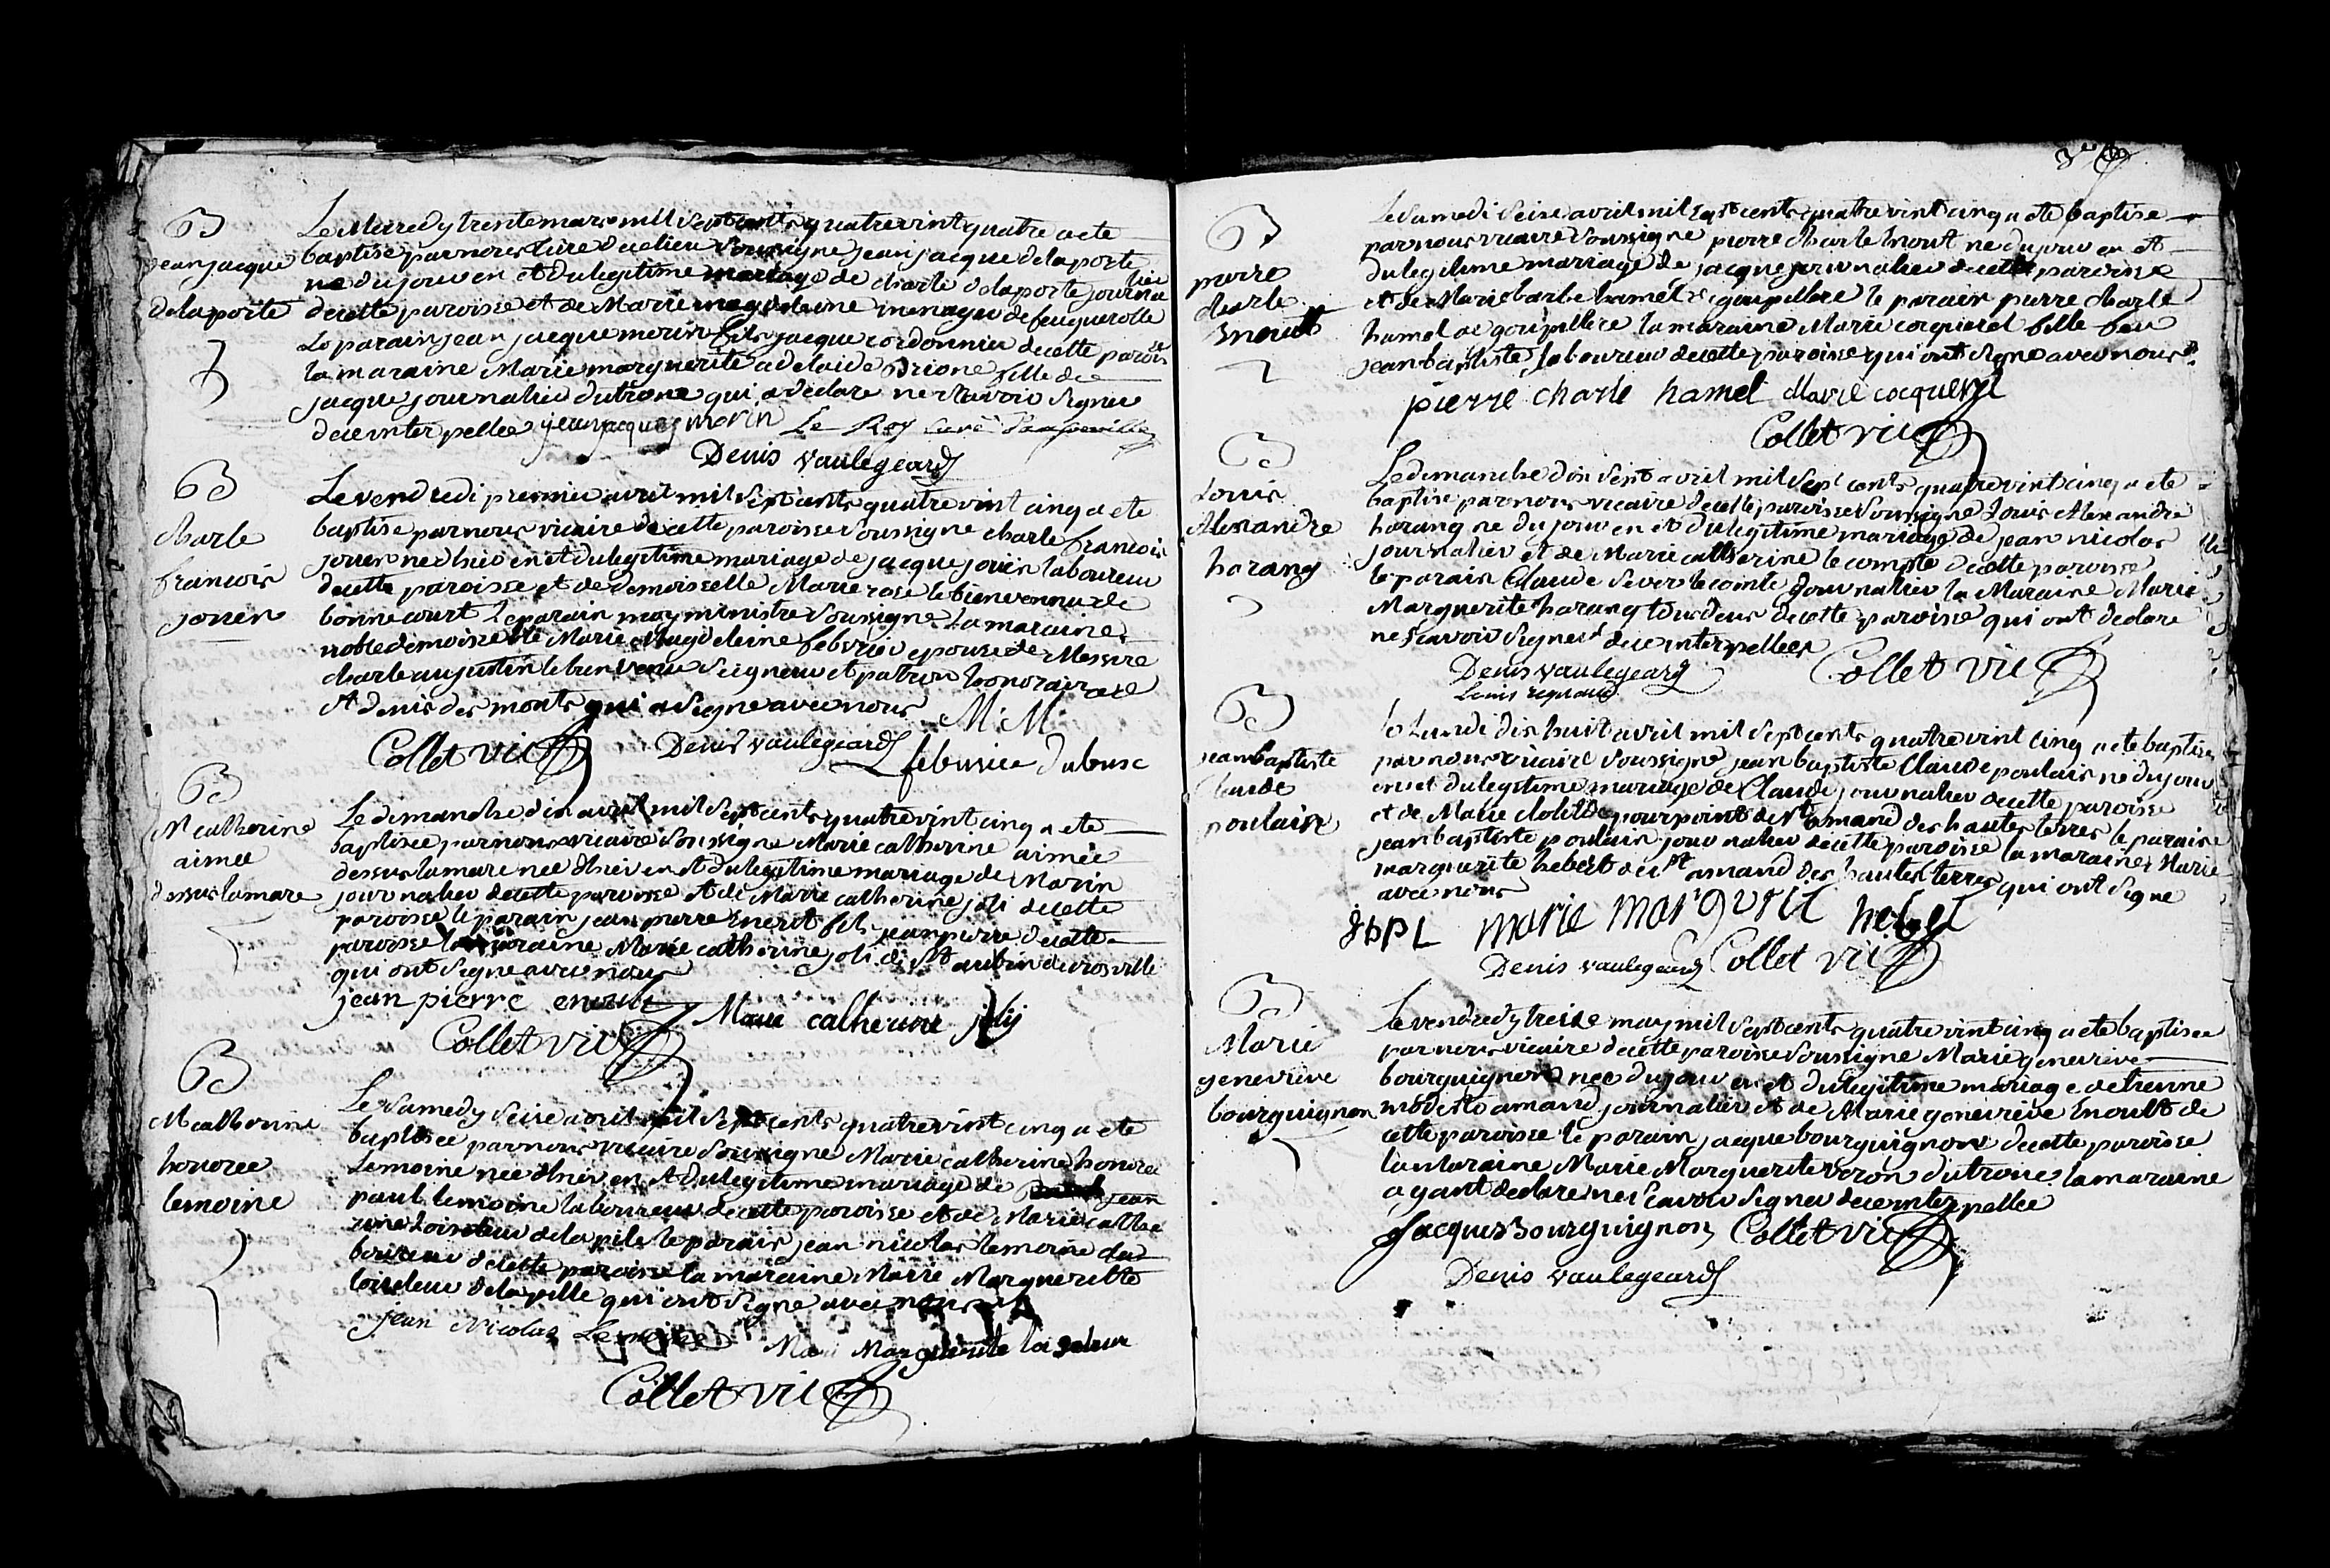 B
jean jacque
delaporte
Le Mecredy trente mars mil sept cents quatre vint quatre a ete
baptise par nous Cure de ce lieu soussigne jean jacque delaporte
ne du jour en et du legitime mariage de charle delaporte journalier
de cette paroisse et de Marie magdeleine menager de feuguerolle
Le parain jean jacque morin fils jacque cordonnier de cette paroisse
la maraine Marie marguerite adelaide Brione fille de
jacque journalier du trone qui a declare ne scavoir signer
de ce interpellee jean jacques morin Le Roy curé
Denis vaulegeard
B
charle
francois
jouen
Le vendredi premier avril mil sept cents quatre vint cinq a ete
baptise par nous vicaire de cette paroisse soussigne charle francois
jouen ne d'hier en et du legitime mariage de jacque jouen laboureur
de cette paroisse et de demoiselle Marie rose le bienvennu de
bonnecourt Le parain moy ministre soussigne La maraine
noble demoiselle Marie Magdeleine febvrier epouse de Messire
charle augustin le bienvenu seigneur et patron honoraire de
st denis des monts qui a signe avec nous M. M.
Collet vic Denis vaulegeard febvrier dubusc
B
M catherine
aimee
dessuslamare
Le demanche dix avril mil sept cents quatre vint cinq a ete
baptisee par nous vicaire soussigne Marie catherine aimée
dessuslamare nee d'hier en et du legitime mariage de Marin
journalier de cette paroisse et de Marie catherine joli de cette
paroisse le parain jean pierre Enoult fils jean pierre de cette
paroisse la maraine Marie catherine joli de St aubin
qui ont signe avec nous
jean pierre enoult Marie catherine joly
Collet vic
B
M catherine
honoree
lemoine
Le Samedy seise avril mil sept cents quatre vint cinq a ete
baptisee par nous vicaire soussigne Marie catherine honoree
Lemoine nee d'hier en et du legitime mariage de jean
paul lemoine laboureur de cette paroisse et de Marie cathe
rine loiseleur de la pile le parain jean nicolas lemoine
de cette paroisse la maraine Marie Margueritte
loiseleur de la pille qui ont signe avec nous
jean Nicolas Lemoine Marie Marguerite loiseleur
Collet vic
B
pierre
charle
Enoult
Le Samedi seise avril mil sept cents quatre vint cinq a ete baptise
par nous vicaire soussigne pierre charle Enout ne du jour en et
du legitime mariage de jacque journalier de cette paroisse
et de Marie barbe hamel de goupillere le parain pierre charle
hamel de goupillere la maraine Marie cocquerel fille feu
jean baptiste laboureur de cette paroisse qui ont signe avec nous
pierre charle hamel Marie cocquerel
Collet vic
B
Louis
Alexandre
harang
Le demanche dix sept avril mil sept cents quatre vint cinq a ete
baptise par nous vicaire de cette paroisse soussigne Louis Alexandre
harang ne du jour en et du legitime mariage de jean nicolas
journalier et de Marie catherine le compte de cette paroisse
le parain Claude sever lecomte journalier la Maraine Marie
Marguerite harang tous deux de cette paroisse qui ont declare
ne scavoir signer de ce interpelles
Denis vaulegeard Collet vic
Louis regnault
B
jean baptiste
Claude
poulain
le Lundi dix huit avril mil sept cents quatre vint cinq a ete baptise
par nous vicaire soussigne jean baptiste Claude poulain né du jour
en et du legitime mariage de Claude journalier de cette paroisse
et de Marie clotilde pourpoint de St amand des hautes terres le parain
jean baptiste poulain journalier de cette paroisse la maraine Marie
marguerite hebert de St amand des hautes terres qui ont signe
avec nous
jbPL marie marguerit hebet
Denis vaulegeard Collet vic
B
Marie
genevieve
bourguignon
Le vendredy treise may mil sept cents quatre vint cinq a ete baptisee
par nous vicaire de cette paroisse soussigne Marie genevieve
bourguignon nee du jour en et du legitime mariage d'etienne
modeste amand journalier et de Marie genevieve Enoult de
cette paroisse le parain jacque bourguignon de cette paroisse
la maraine Marie Marguerite veron du trone la maraine
ayant declare ne scavoir signer de ce interpellee
Jacques Bourguignon Collet vic
Denis vaulegeard